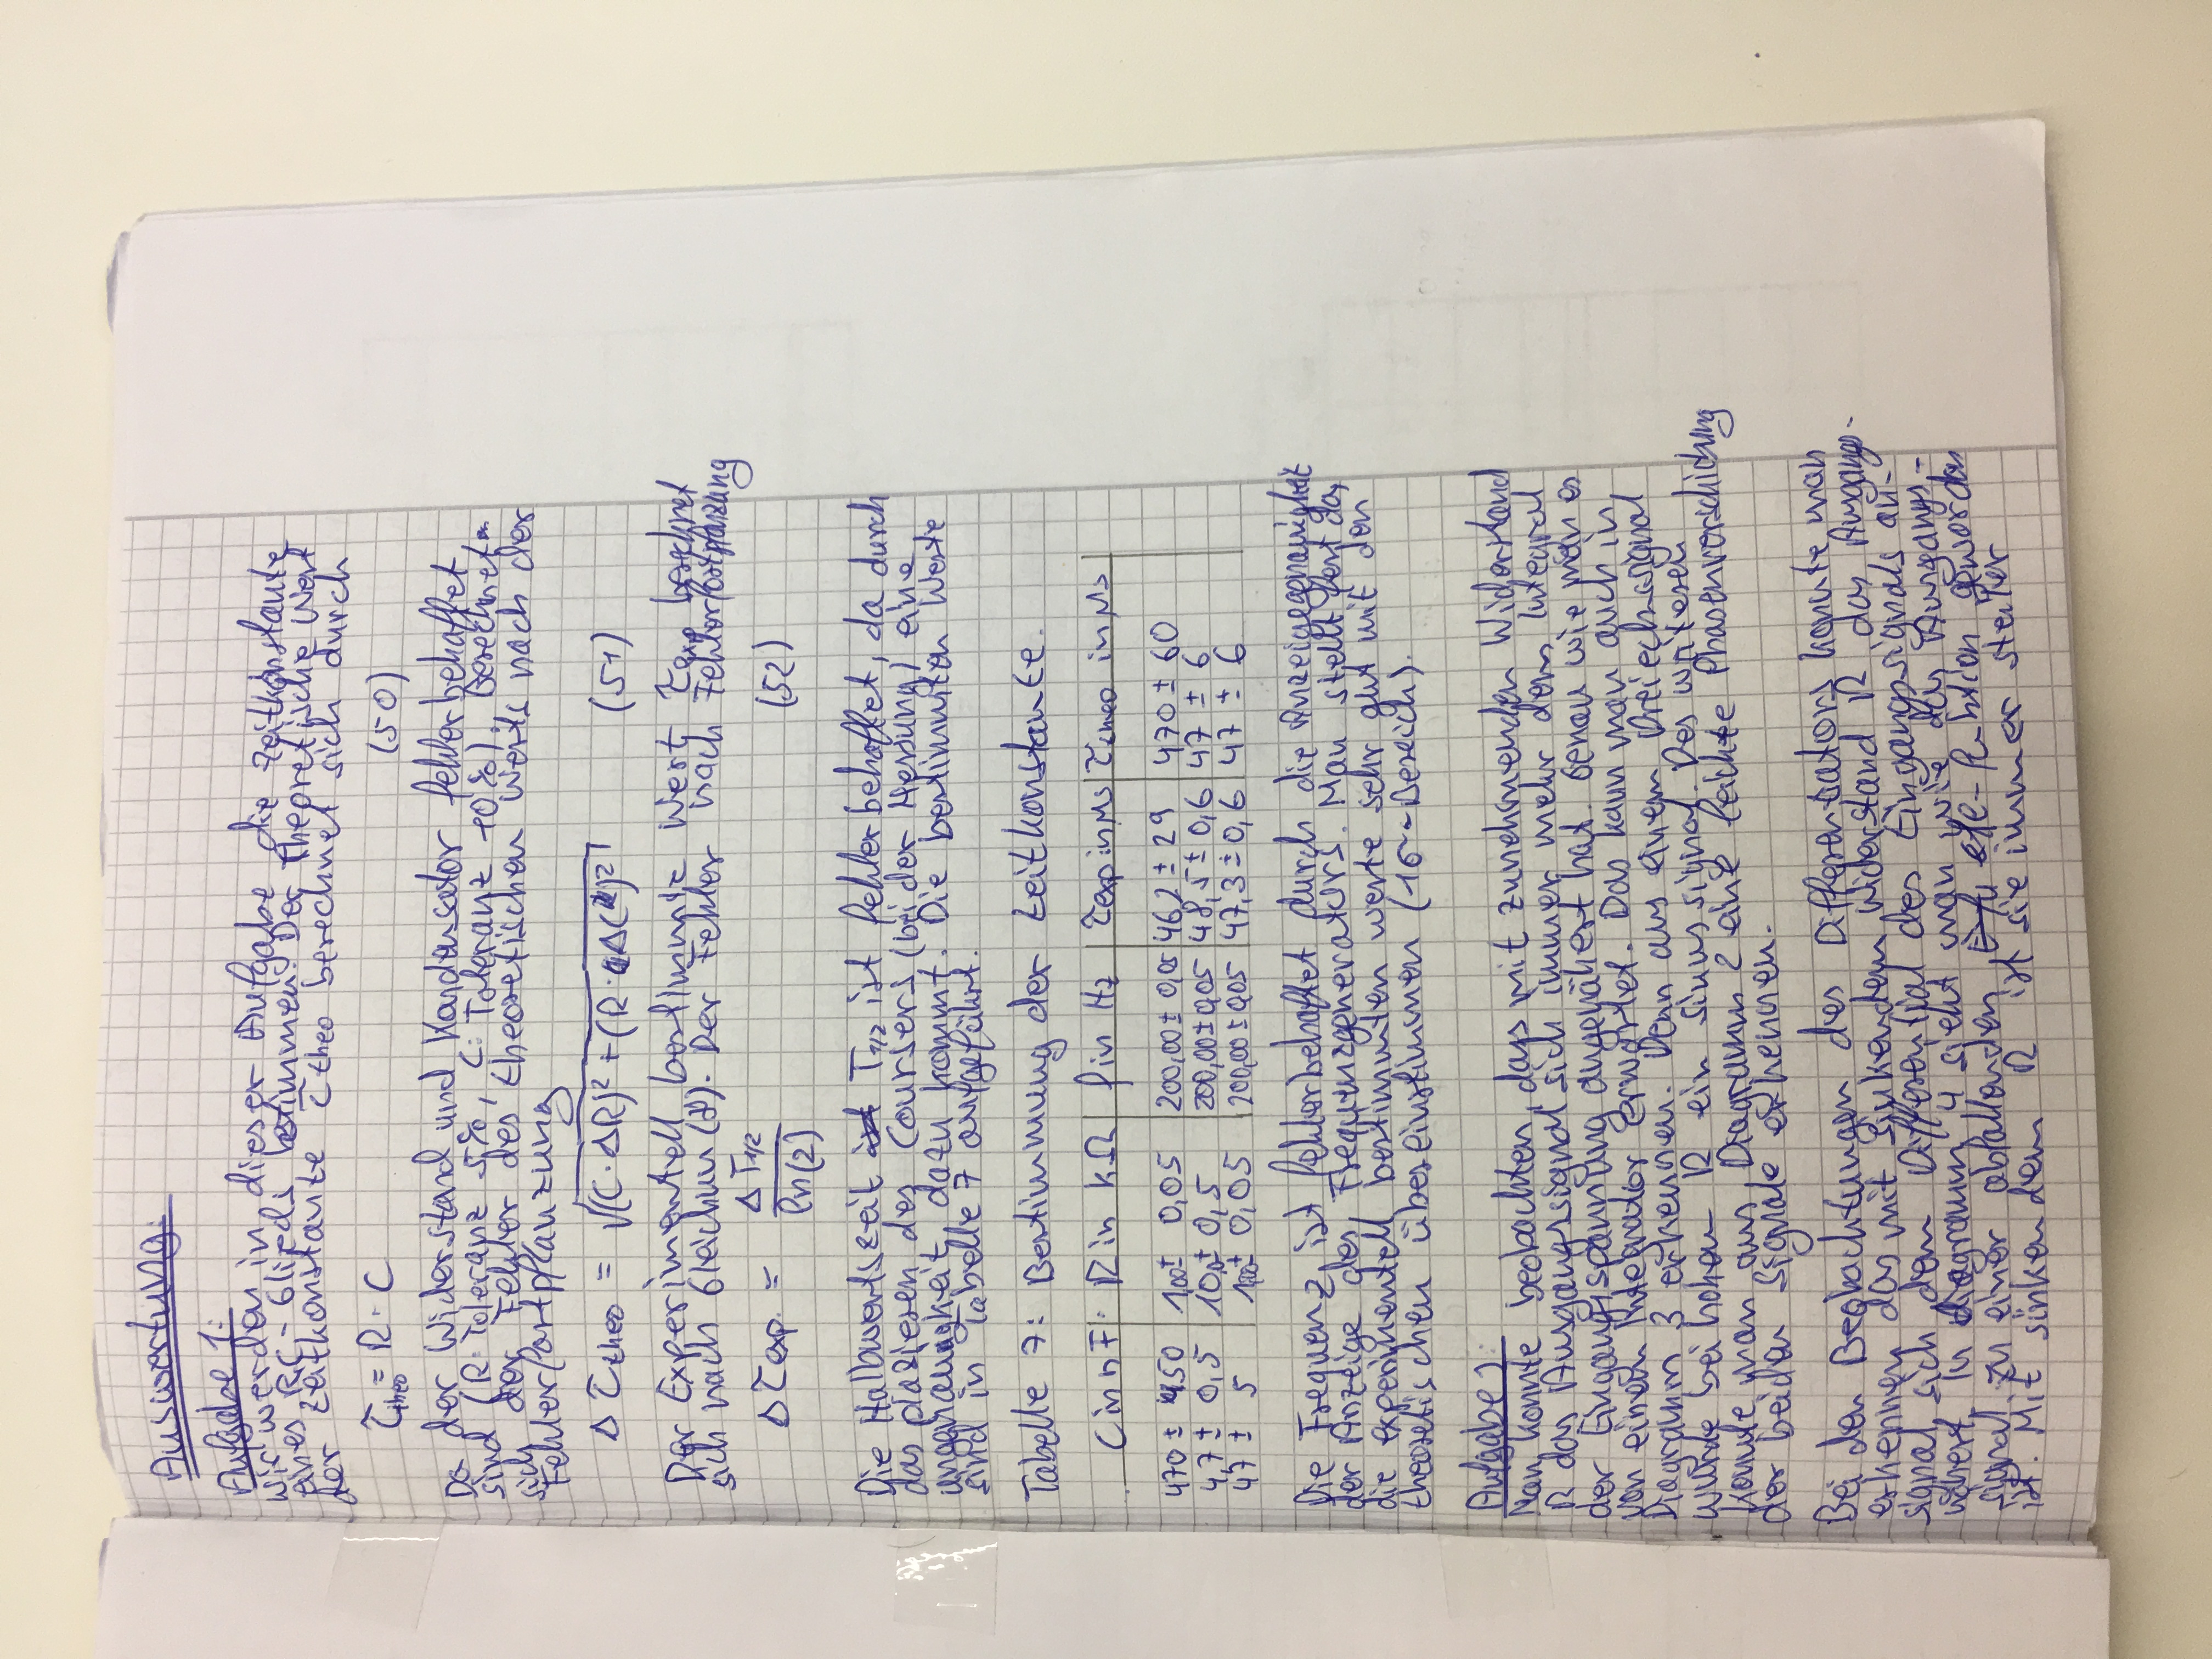 Auswertung:
Aufgabe 1:
Wir werden in dieser Aufgabe die Zeitkonstante
eines RC-Glieds bestimmen. Der Theoretische Wert
der Zeitkonstante τtheo berechnet sich durch
τtheo = R · C (50)
Da der Widerstand und Kondensator fehlerbehaftet
sind (R: Toleranz 5%, C: Toleranz 10%). Berechnet
sich der Fehler des theoretischen Werts nach der
Fehlerfortpflanzung
Δτtheo = √((C·ΔR)² + (R·ΔC)²) (51)
Der Experimentell bestimmte Wert τexp berechnet
sich nach Gleichun. Der Fehler nach Fehlerfortpflanzung
Δτexp. = ΔT1/2 / ln(2) (52)
Die Halbwertszeit T1/2 ist fehlerbehaftet, da durch
das plazieren des Coursers (bei der Messung) eine
ungenauigkeit dazu kommt. Die bestimmten Werte
sind in Tabelle 7 aufgeführt.
Tabelle 7: Bestimmung der Zeitkonstante.
C in nF R in kΩ f in Hz τexp in μs τtheo in μs
470 ± 50 1,00 ± 0,05 200,00 ± 0,05 462 ± 29 470 ± 60
4,7 ± 0,5 10,0 ± 0,5 200,00 ± 0,05 48,5 ± 0,6 47 ± 6
47 ± 5 1,00 ± 0,05 200,00 ± 0,05 47,3 ± 0,6 47 ± 6
Die Frequenz ist fehlerbehaftet durch die Anzeigegenauigkeit
der Anzeige des Frequenzgenerators. Man stellt fest das
die experimentell bestimmten werte sehr gut mit den
theoretischen übereinstimmen (1σ-Bereich).
Aufgabe 2:
Man konnte beobachten, dass mit zunehmenden Widerstand
R das Ausgangssignal sich immer mehr dem Integral
der Eingangsspannung angenähert hat. Genau wie man es
von einem Integrator erwartet. Das kann man auch in
Diagramm 3 erkennen. Denn aus einem Dreieckssignal
wurde bei hohem R ein sinussignal. Des weiteren
konnte man aus Diagramm 2 eine leichte Phasenverschiebung
der beiden Signale erkennen.
Bei den Beobachtungen des Differentiators konnte man
erkennen das mit sinkendem Widerstand R das Ausgangs-
signal sich dem Differential des Eingangssignals an-
nähert. In diagramm 4 sieht man wie das Ausgangs-
signal zu einer abfallenden e-funktion geworden
ist. Mit sinkendem R ist sie immer steiler